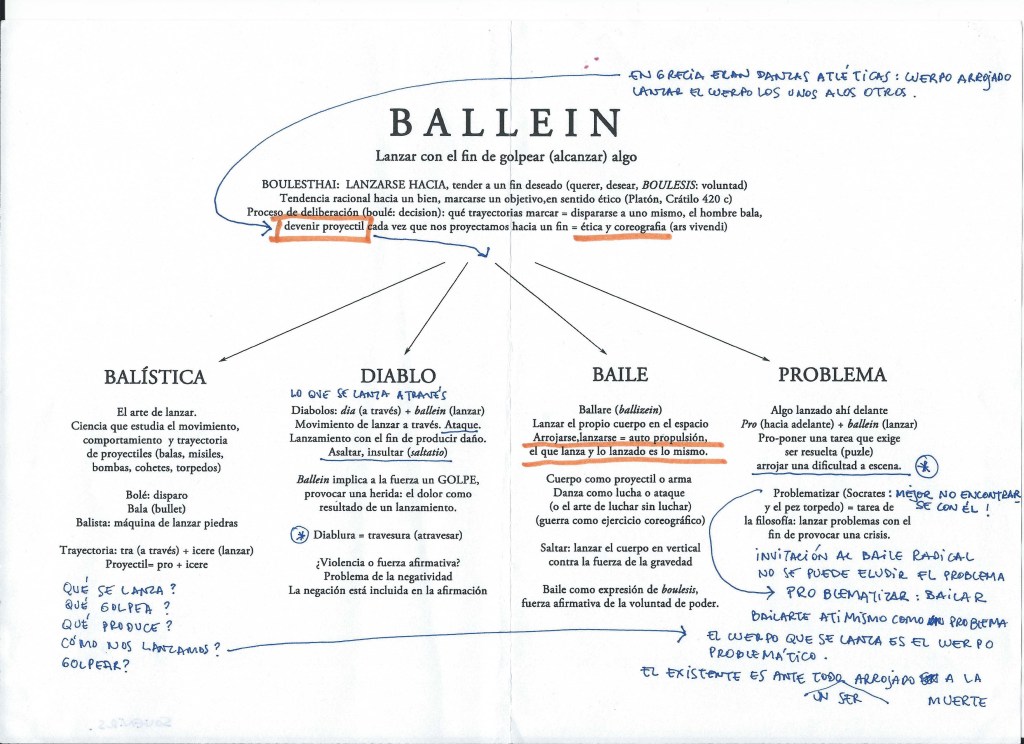 EN GRECIA ERAN DANZAS ATLÉTICAS: CUERPO ARROJADO
LANZAR EL CUERPO LOS UNOS A LOS OTROS.
BALLEIN
Lanzar con el fin de golpear (alcanzar) algo
BOULESTHAI: LANZARSE HACIA, tender a un fin deseado (querer, desear, BOULESIS: voluntad)
Tendencia racional hacia un bien, marcarse un objetivo,en sentido ético (Platón, Crátilo 420 c)
Proceso de deliberación (boulé: decision): qué trayectorias marcar = dispararse a uno mismo, el hombre bala,
devenir proyectil cada vez que nos proyectamos hacia un fin = ética y coreografia (ars vivendi)
BALÍSTICA
El arte de lanzar.
Ciencia que estudia el movimiento,
comportamiento y trayectoria
de proyectiles (balas, misiles,
bombas, cohetes, torpedos)
Bolé: disparo
Bala (bullet)
Balista: máquina de lanzar piedras
Trayectoria: tra (a través) + icere (lanzar)
Proyectil= pro + icere
QUÉ SE LANZA?
QUÉ GOLPEA?
QUÉ PRODUCE?
CÓMO NOS LANZAMOS?
GOLPEAR?
DIABLO
LO QUE SE LANZA ATRAVÉS
Diabolos: dia (a través) + ballein (lanzar)
Movimiento de lanzar a través. Ataque.
Lanzamiento con el fin de producir daño.
Asaltar, insultar (saltatio)
Ballein implica a la fuerza un GOLPE,
provocar una herida: el dolor como
resultado de un lanzamiento.
* Diablura = travesura (atravesar)
¿Violencia o fuerza afirmativa?
Problema de la negatividad
La negación está incluida en la afirmación
BAILE
Ballare (ballizein)
Lanzar el propio cuerpo en el espacio
Arrojarse,lanzarse = auto propulsión,
el que lanza y lo lanzado es lo mismo.
Cuerpo como proyectil o arma
Danza como lucha o ataque
(o el arte de luchar sin luchar)
(guerra como ejercicio coreográfico)
Saltar: lanzar el cuerpo en vertical
contra la fuerza de la gravedad
Baile como expresión de boulesis,
fuerza afirmativa de la voluntad de poder.
PROBLEMA
Algo lanzado ahí delante
Pro (hacia adelante) + ballein (lanzar)
Pro-poner una tarea que exige
ser resuelta (puzle)
arrojar una dificultad a escena. *
Problematizar (Socrates : MEJOR NO ENCONTRAR
y el pez torpedo) = tarea de SE CON ÉL!
la filosofía: lanzar problemas con el
fin de provocar una crisis.
INVITACIÓN AL BAILE RADICAL
NO SE PUEDE ELUDIR EL PROBLEMA
PROBLEMATIZAR: BAILAR
BAILARTE A TI MISMO COMO UN PROBLEMA
EL CUERPO QUE SE LANZA ES EL CUERPO
PROBLEMÁTICO.
EL EXISTENTE ES ANTE TODO ARROJADO A LA
UN SER MUERTE